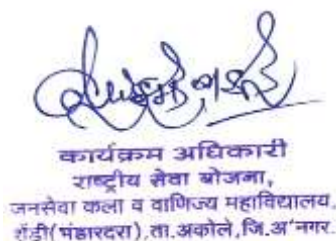 कार्यक्रम अधिकारी
राष्ट्रीय सेवा योजना,
जनसेवा कला व वाणिज्य महाविद्यालय,
शेंडी(भंडारदरा), ता.अकोले, जि.अ'नगर.